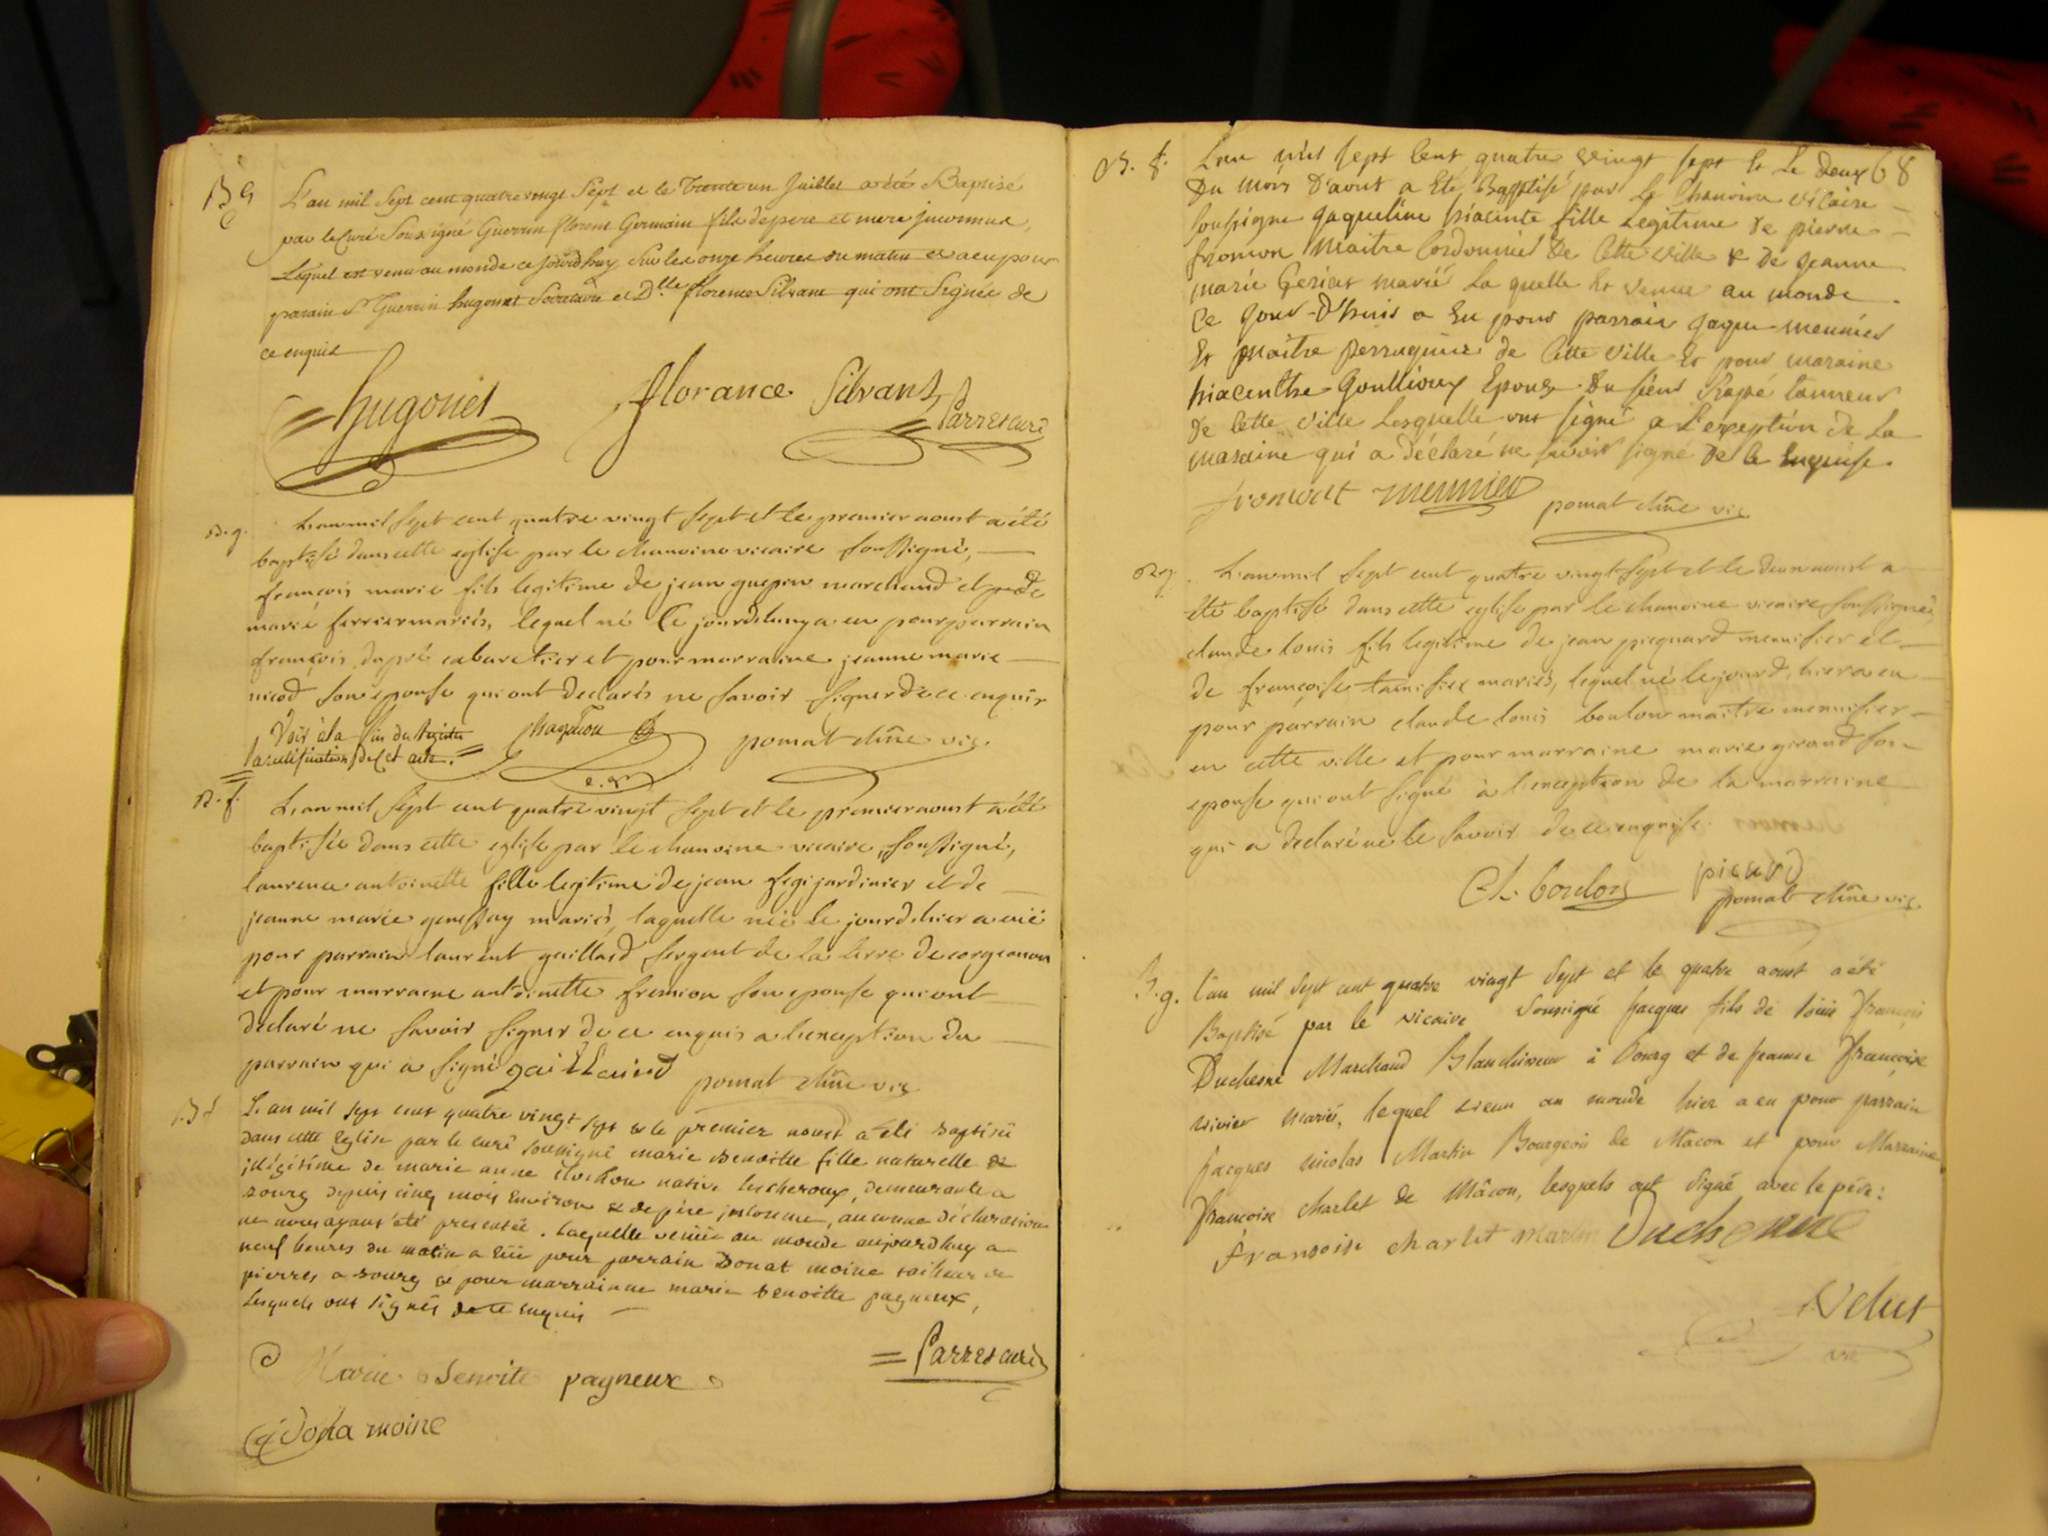 B G
L'an mil Sept cent quatre vingt Sept et le Trente un Juillet a été Baptisé
par le Curé Soussigné Guerrin florent Germain fils de pere et mere inconnue,
Lequel est venu au monde ce jourd'huy Sur les onze heures du matin et a eu pour
parain Sr Guerrin hugonet Secretaire et Dlle florence Silvant qui ont Signée de
ce enquis
hugonet florance Silvant
Parres curé
B. g.
L'an mil sept cent quatre vingt sept et le premier aoust a été
baptisé dans cette eglise par le chanoine vicaire soussigné,
françois marie fils legitime de jean guepin marchand et de
marie ferrier mariés, lequel né Ce jourdhuy a eu pour parrain
françois dupré cabaretier et pour marraine jeanne marie
nicod son epouse qui ont declarés ne savoir signer de ce enquis
Voir à la fin du Registre
la rectification de Cet acte. pomat chne vic.
B. f.
L'an mil sept cent quatre vingt sept et le premier aoust a été
baptisée dans cette eglise par le chanoine vicaire, soussigné,
laurence antoinette fille legitime de jean jardinier et de
jeanne marie mariés, laquelle née le jourd'hier a eüe
pour parrain laurent gaillard sergent de la terre de corgenon
et pour marraine antoinette fremion son epouse qui ont
declaré ne savoir signer de ce enquis a l'exception du
parrain qui a signé gaillaird pomat chne vic
B f
L'an mil sept cent quatre vingt sept & le premier aoust a été baptisée
dans cette Eglise par le curé soussigné marie Benoitte fille naturelle &
illégitime de marie anne native lescheroux, demeurante a
Bourg depuis cinq mois Environ & de père inconnue, aucune déclaration
ne nous ayant été presentée. Laquelle venüe au monde aujourdhuy a
neuf heures du matin a Eüe pour parrain Donat moine tailleur de
pierres a Bourg & pour marrainne marie Benoitte pagneux,
Lesquels ont signés de ce enquis
Marie Benoite pagneux Parres curé
Dona moine
68
B. f.
L'an mil sept cent quatre vingt sept Et Le Deux
Du mois D'aout a Eté Baptisé par Le Chanoine vicaire
soussigne Jaqueline hiacinte fille Legitime de pierre
fromon Maitre Cordonnier De Cette ville & de Jeanne
marie marié La quelle Et venue au monde
Ce Jour-D'huis a Eu pour parrain Jaque meunier
Et Maitre perruquier de Cette ville Et pour maraine
hiacinthe Goullioux Epouze Du sieur tanneur
De Cette ville Lesquelle ont signé a L'exception de La
maraine qui a déclaré ne savoir signé de Ce Enquise.
fromont meunier pomat chne vic
B. g.
L'an mil sept cent quatre vingt sept et le deux aoust a
été baptisé dans cette eglise par le chanoine vicaire soussigné,
claude louis fils legitime de jean picquard menusier et
de françoise mariés, lequel né le jourd'hier a eu
pour parrain claude louis boulon maitre menusier
en cette ville et pour marraine marie girand son
epouse qui ont signé à l'exception de la marraine
qui a declaré ne le savoir de ce enquise.
Cl. boulon picard
pomat chne vic.
B. g.
L'an mil sept cent quatre vingt sept et le quatre aoust a été
Baptisé par le vicaire Soussigné Jacques fils de loüis François
Duchesne Marchand Blanchisseur à Bourg et de Jeanne Françoise
vivier mariés, lequel vienu au monde hier a eu pour parrain
Jacques nicolas Martin Bourgeois de Mâcon et pour Marraine
Françoise charlet de Mâcon, lesquels ont signé avec le pére:
fransoise charlet martin Duchenne
Velut
vic